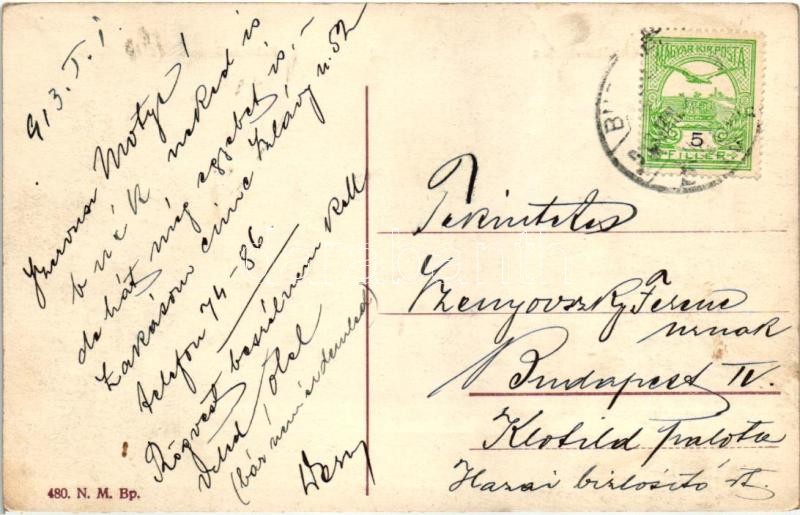 913. I. 1.
Szervusz Motyi!
b u é k neked is
de hát még egyebet is.-
Lakásom címe Szlávy u. 52
telefon 74-86
Rögvest beszélnem kell
Veled ölel
(bár nem érdemled)
480. N. M. Bp.
MAGYAR KIR. POSTA
5
FILLER
Tekintetes
Szenyovszky Ferenc
urnak
Budapest IV.
Klotild palota
Hazai bizlosító rt.